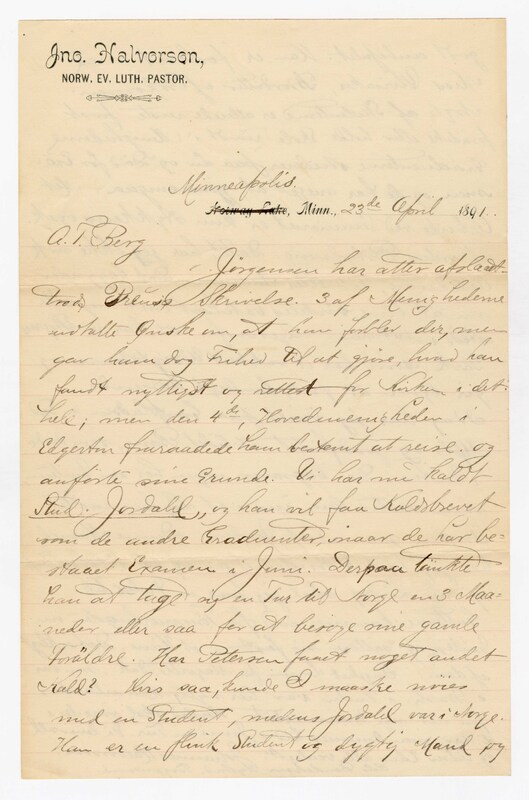 Jno. Halvorson,
NORW. EV. LUTH. PASTOR.
Minneapolis.
Norway Lake, Minn., 23de April 1891.
A. T. Berg
Jörgensen har atter afslaaet
trods Preus's Skrivelse. 3 af Menighederne
udtalte Ønske om, at han forblev der, men
gav ham dog Frihed til at gjøre, hvad han
fandt nyttigst og rettest for Kirken i det
hele; men den 4de, Hovedmenigheden i
Edgerton fraraadede ham bestemt at reise og
anförte sine Grunde. Vi har nu kaldt
Stud. Jordahl, og han vil faa Kaldsbrevet
som de andre Graduenter, naar de har be-
staaet Examen i Juni. Derpaa tænkte
han at tage sig en Tur til Norge en 3 Maa-
neder eller saa for at besøge sine gamle
Forældre. Har Petersen faaet noget andet
Kald? Hvis saa, kunde I maaske nöies
med en Student, medens Jordahl var i Norge.
Han er en flink Student og dygtig Mand og